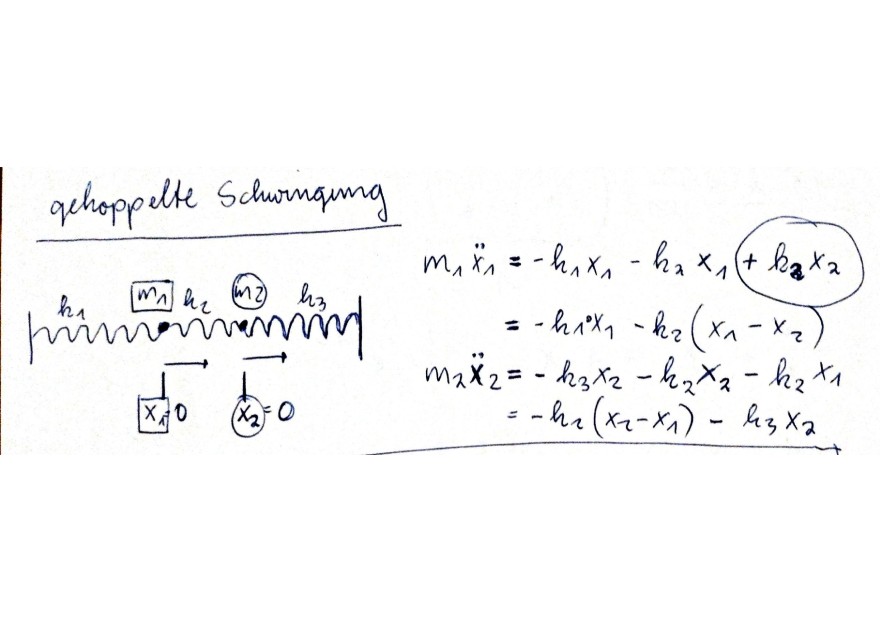 gekoppelte Schwingung
k₁ m₁ k₂ m₂ k₃
x₁=0 x₂=0
m₁ẍ₁ = -k₁x₁ - k₂x₁ + k₂x₂
= -k₁·x₁ - k₂(x₁ - x₂)
m₂ẍ₂ = -k₃x₂ - k₂x₂ - k₂x₁
= -k₂(x₂-x₁) - k₃x₂